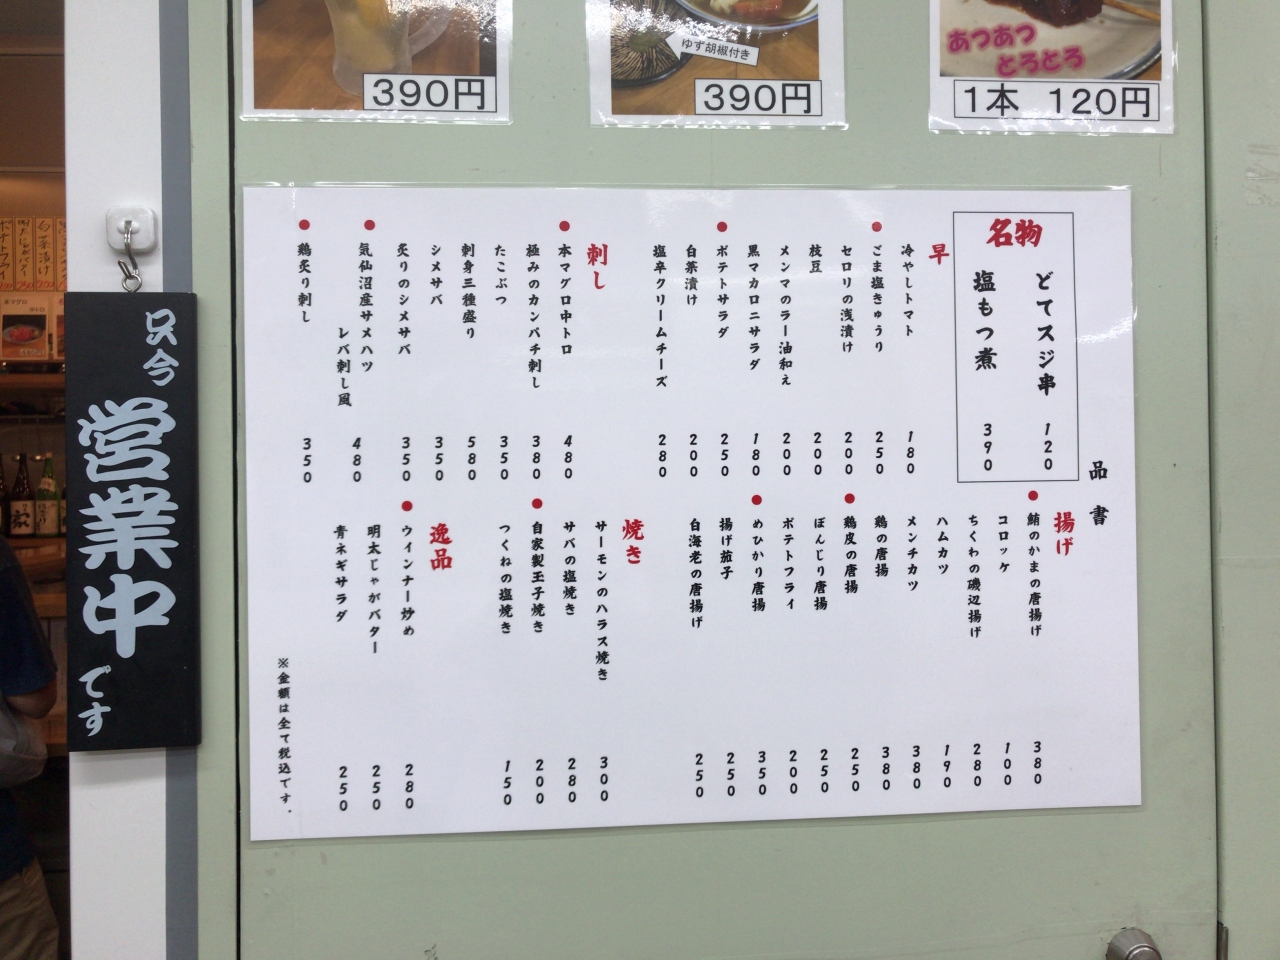 ゆず胡椒付き
390円
390円
あつあつ
とろとろ
1本 120円
只今
営業中
です
品書
名物
どてスジ串 120
塩もつ煮 390
早
冷やしトマト 180
●ごま塩きゅうり 250
セロリの浅漬け 200
枝豆 200
メンマのラー油和え 200
黒マカロニサラダ 180
●ポテトサラダ 250
白菜漬け 200
塩辛クリームチーズ 280
刺し
●本マグロ中トロ 480
極みのカンパチ刺し 380
たこぶつ 350
刺身三種盛り 580
シメサバ 350
炙りのシメサバ 350
●気仙沼産サメハツ
レバ刺し風 480
●鶏炙り刺し 350
揚げ
●鮪のかまの唐揚げ 380
コロッケ 100
ちくわの磯辺揚げ 280
ハムカツ 190
メンチカツ 380
鶏の唐揚 380
●鶏皮の唐揚 250
ぼんじり唐揚 250
ポテトフライ 200
●めひかり唐揚 350
揚げ茄子 250
白海老の唐揚げ 250
焼き
サーモンのハラス焼き 300
サバの塩焼き 280
●自家製玉子焼き 200
つくねの塩焼き 150
逸品
●ウィンナー炒め 280
明太じゃがバター 250
青ネギサラダ 250
※金額は全て税込です。